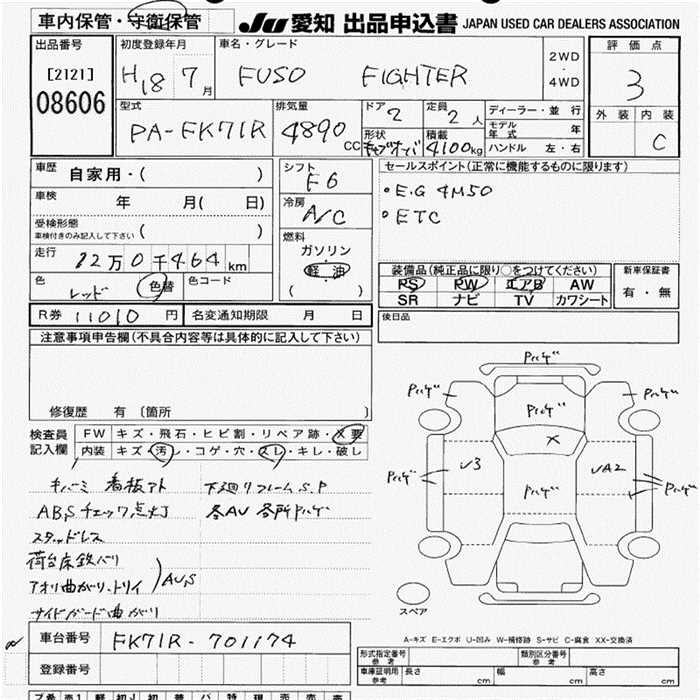 車内保管・守衛保管 JU 愛知 出品申込書 JAPAN USED CAR DEALERS ASSOCIATION
出品番号 初度登録年月 車名・グレード 評価点
[2121] H18 7月 FUSO FIGHTER 2WD・4WD 3
08606 外装 内装
型式 排気量 ドア 定員 ディーラー・並行
PA-FK71R 4890 CC 2 2人 モデル年式 年 C
形状 キャブオーバ 積載 4100kg ハンドル 左・右
車歴 自家用・( ) シフト F6 セールスポイント(正常に機能するものに限ります)
車検 年 月( 日) 冷房 A/C ・E.G 4M50
受検形態 車検付きのみ記入して下さい ( ) ・ETC
走行 12万0千464km 燃料 ガソリン・軽油 ( )
色 レッド 色替 色コード 装備品(純正品に限り○をつけてください) 新車保証書
PS PW エアB AW 有・無
SR ナビ TV カワシート
R券 11010円 名変通知期限 月 日 後日品
注意事項申告欄(不具合内容等は具体的に記入して下さい)
修復歴 有 〔箇所 〕
検査員記入欄 FW キズ・飛石・ヒビ割・リペア跡・X要
内装 キズ・汚レ・コゲ・穴・スレ・キレ・破レ
看板アト
ABSチェック点灯
スタッドレス
荷台床鉄バリ
アオリ曲がり・トリイ
サイドガード曲がり
下廻リフレームS.P
各AU 各所Pハゲ
AU,S
Pハゲ
Pハゲ Pハゲ Pハゲ
X
U3 UA2
Pハゲ Pハゲ Pハゲ
スペア
A-キズ E-エクボ U-凹み W-補修跡 S-サビ C-腐食 XX-交換済
車台番号 FK71R-701174
登録番号
形式指定番号 参考 類別区分番号 参考
車庫証明用 参考 長さ cm 幅 cm 高さ cm